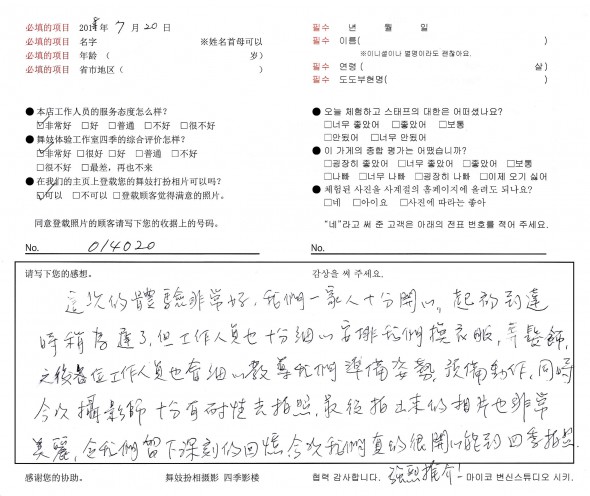 必填的项目 2018年 7 月 20 日
必填的项目 名字 ※姓名首母可以
必填的项目 年龄 ( 岁)
必填的项目 省市地区 ( )
●本店工作人员的服务态度怎么样?
☑非常好 □好 □普通 □不好 □很不好
●舞妓体验工作室四季的综合评价怎样?
☑非常好 □很好 □好 □普通 □不好
□很不好 □最差,再也不来
●在我们的主页上登载您的舞妓打扮相片可以吗?
☑可以 □不可以 □登载顾客觉得满意的照片。
同意登载照片的顾客请写下您的收据上的号码。
No. 014020
필수 년 월 일
필수 이름( )
※이니셜이나 별명이라도 괜찮아요.
필수 연령 ( 살)
필수 도도부현명( )
● 오늘 체험하고 스태프의 대한은 어떠셨나요?
□너무 좋았어 □좋았어 □보통
□안됬어 □너무 안됬어
● 이 가게의 종합 평가는 어땠습니까?
□굉장히 좋았어 □너무 좋았어 □좋았어 □보통
□나빠 □너무 나빠 □굉장히 나빠 □이제 오기 싫어
● 체험된 사진을 사계절의 홈페이지에 올려도 되나요?
□네 □아이요 □사진에 따라는 좋아
“네”라고 써 준 고객은 아래의 전표 번호를 적어 주세요.
No.
请写下您的感想。 감상을 써 주세요.
這次的體驗非常好,我們一家人十分開心。起初到達
時稍為遲了,但工作人員也十分細心安排我們換衣服,弄髮飾,
之後各位工作人員也會細心教導我們準備姿勢,預備動作,同時
今次攝影師十分有耐性去拍照,最後拍出來的相片也非常
美麗,令我們留下深刻的回憶,今次我們真的很開心能到四季拍照.
強烈推介!
感谢您的协助。 舞妓扮相摄影 四季影楼 협력 감사합니다. 마이코 변신스튜디오 시키.